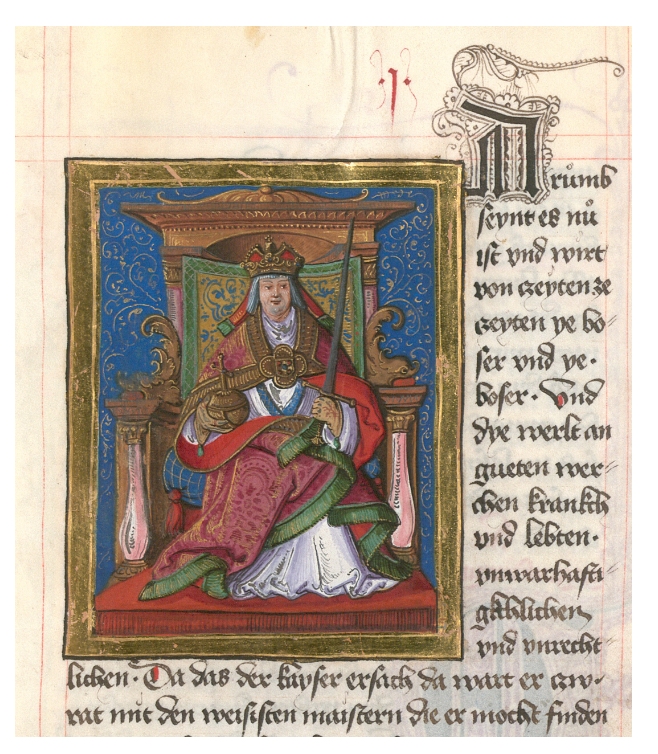 I
Darumb
seynt es nů
ist vnd wirt
von czeyten ze
czeyten ye bo⸗
ser vnd ye·
boser· Vnd
dye werlt an
gueten wer⸗
chen krankch
vnd lebten·
vnwarhafti⸗
gkhlichen
vnd vnrecht⸗
lichen· Da das der kayser ersach da wart er czw⸗
rat mit den weisisten maistern die er mocht finden